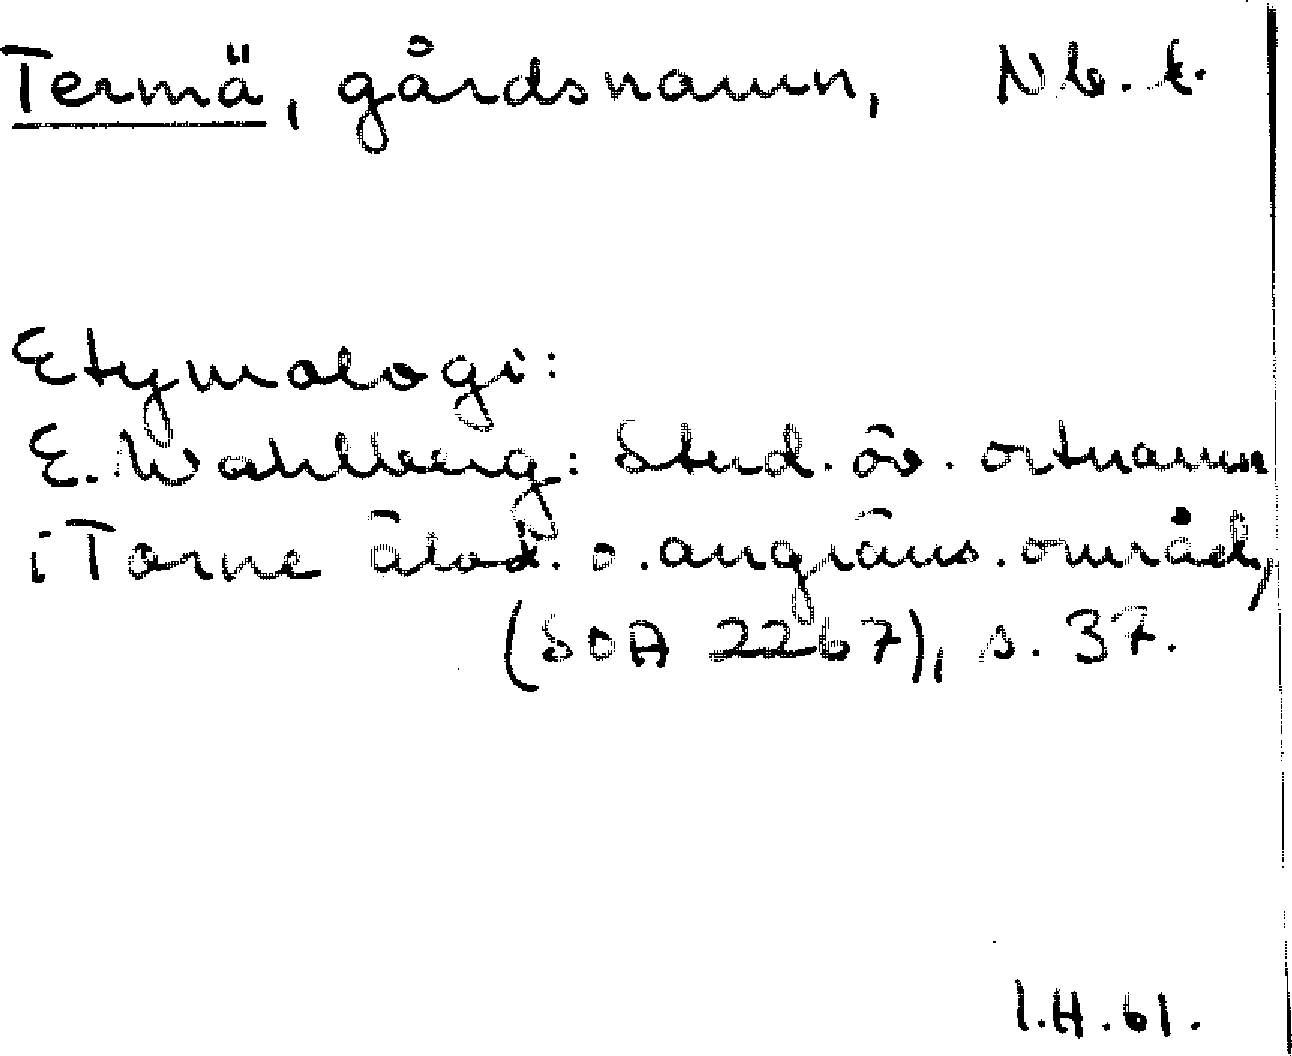 Termä, gårdsnamn, Nb. t.
Etymologi:
E. Wahlberg: Stud. öv. ortnamn
i Torne älvd. o. angräns. områd.,
(SOA 2267), s. 37.
I.H. 61.